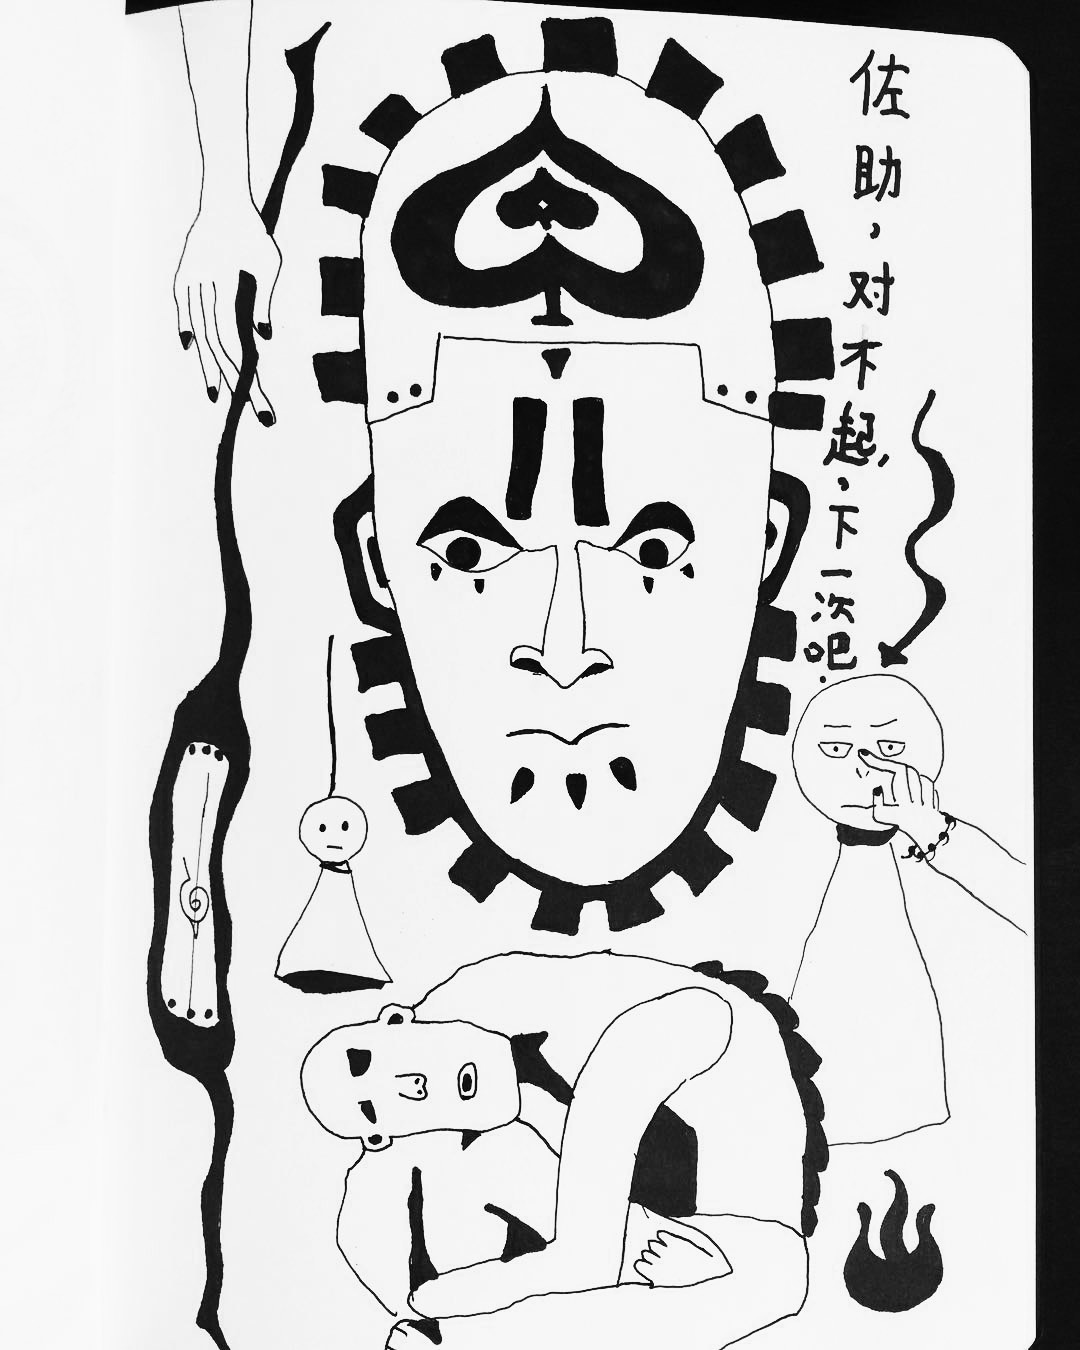 佐助，对不起，下一次吧.